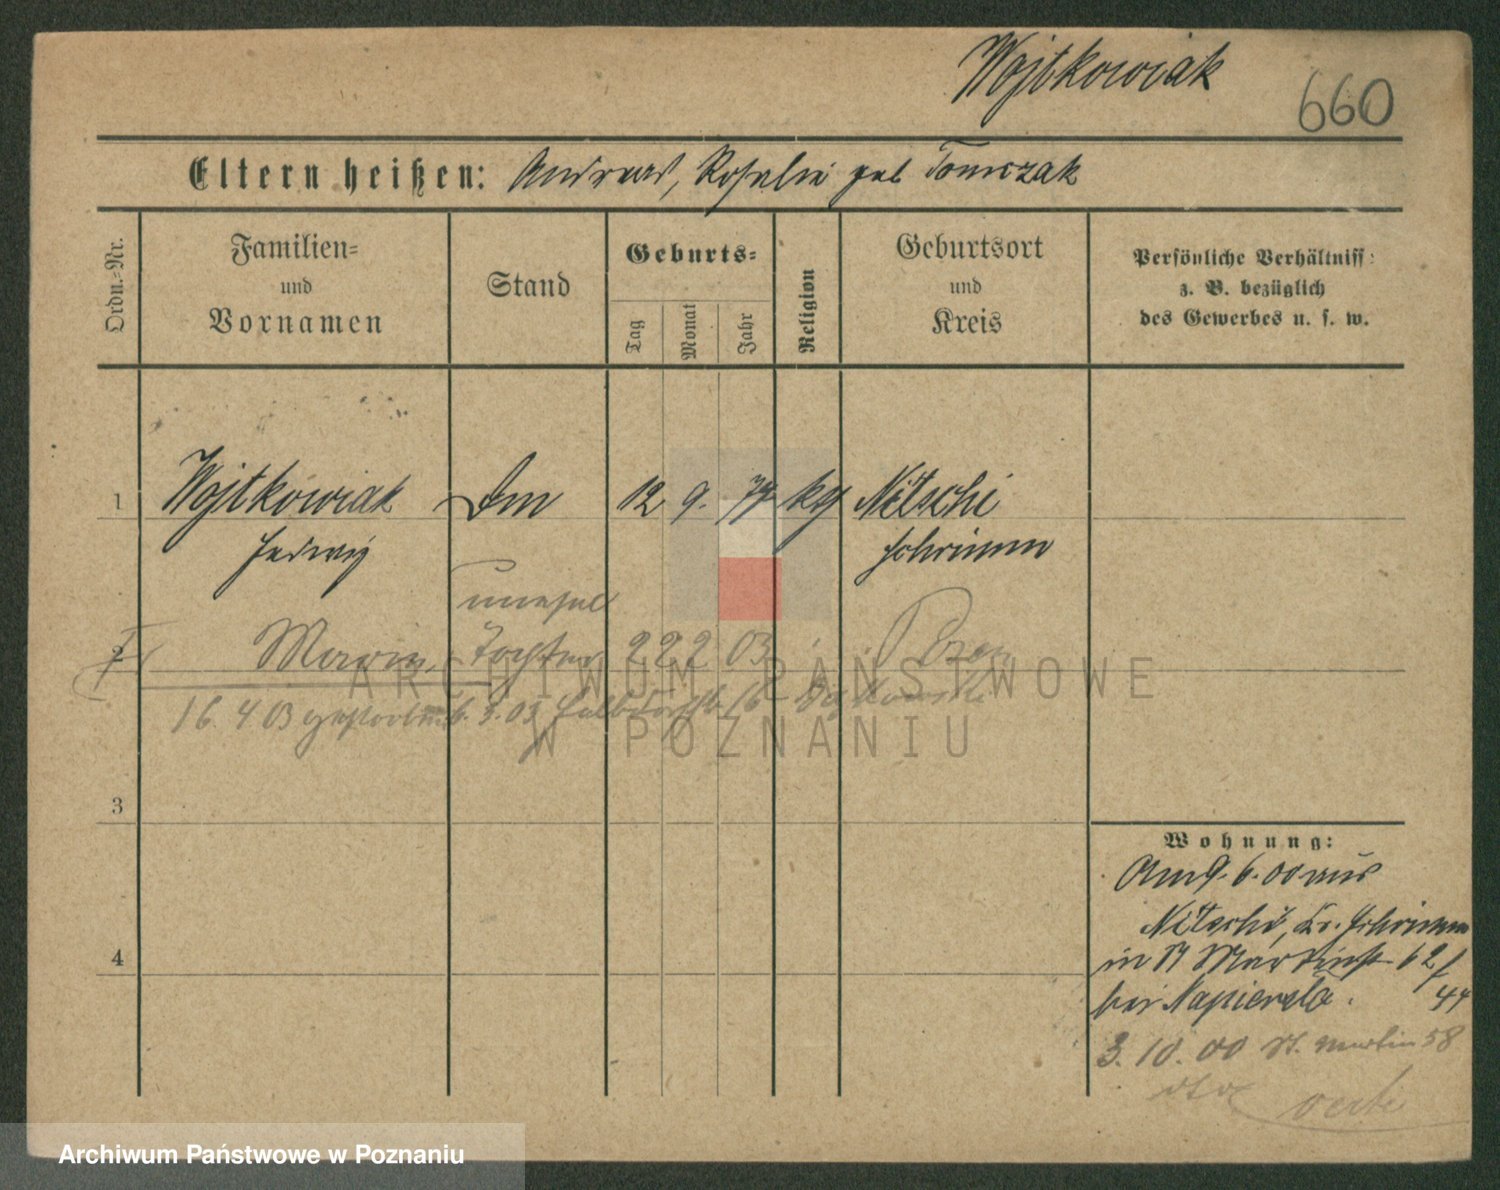 Wojtkowiak
660
Eltern heißen: Andreas, Rosalie geb Tomczak
Ordn.=Nr.
Familien= und Vornamen
Stand
Geburts=
Tag
Monat
Jahr
Religion
Geburtsort und Kreis
Persönliche Verhältniss:
z. B. bezüglich
des Gewerbes u. s. w.
1 Wojtkowiak 12 9. 77 kg Nitschi
Hedwig Schrimm
unehel
Maria Tochter 22 2 03 Posen
16. 4 03 gestorben 6. 3. 03
3
4
Wohnung:
Am 9. 6. 00 aus
Nitschi, Kr. Schrimm
in St Martinst 62
bei Napierala.
3. 10. 00 St. Martin 58
ARCHIWUM PAŃSTWOWE
W POZNANIU
Archiwum Państwowe w Poznaniu